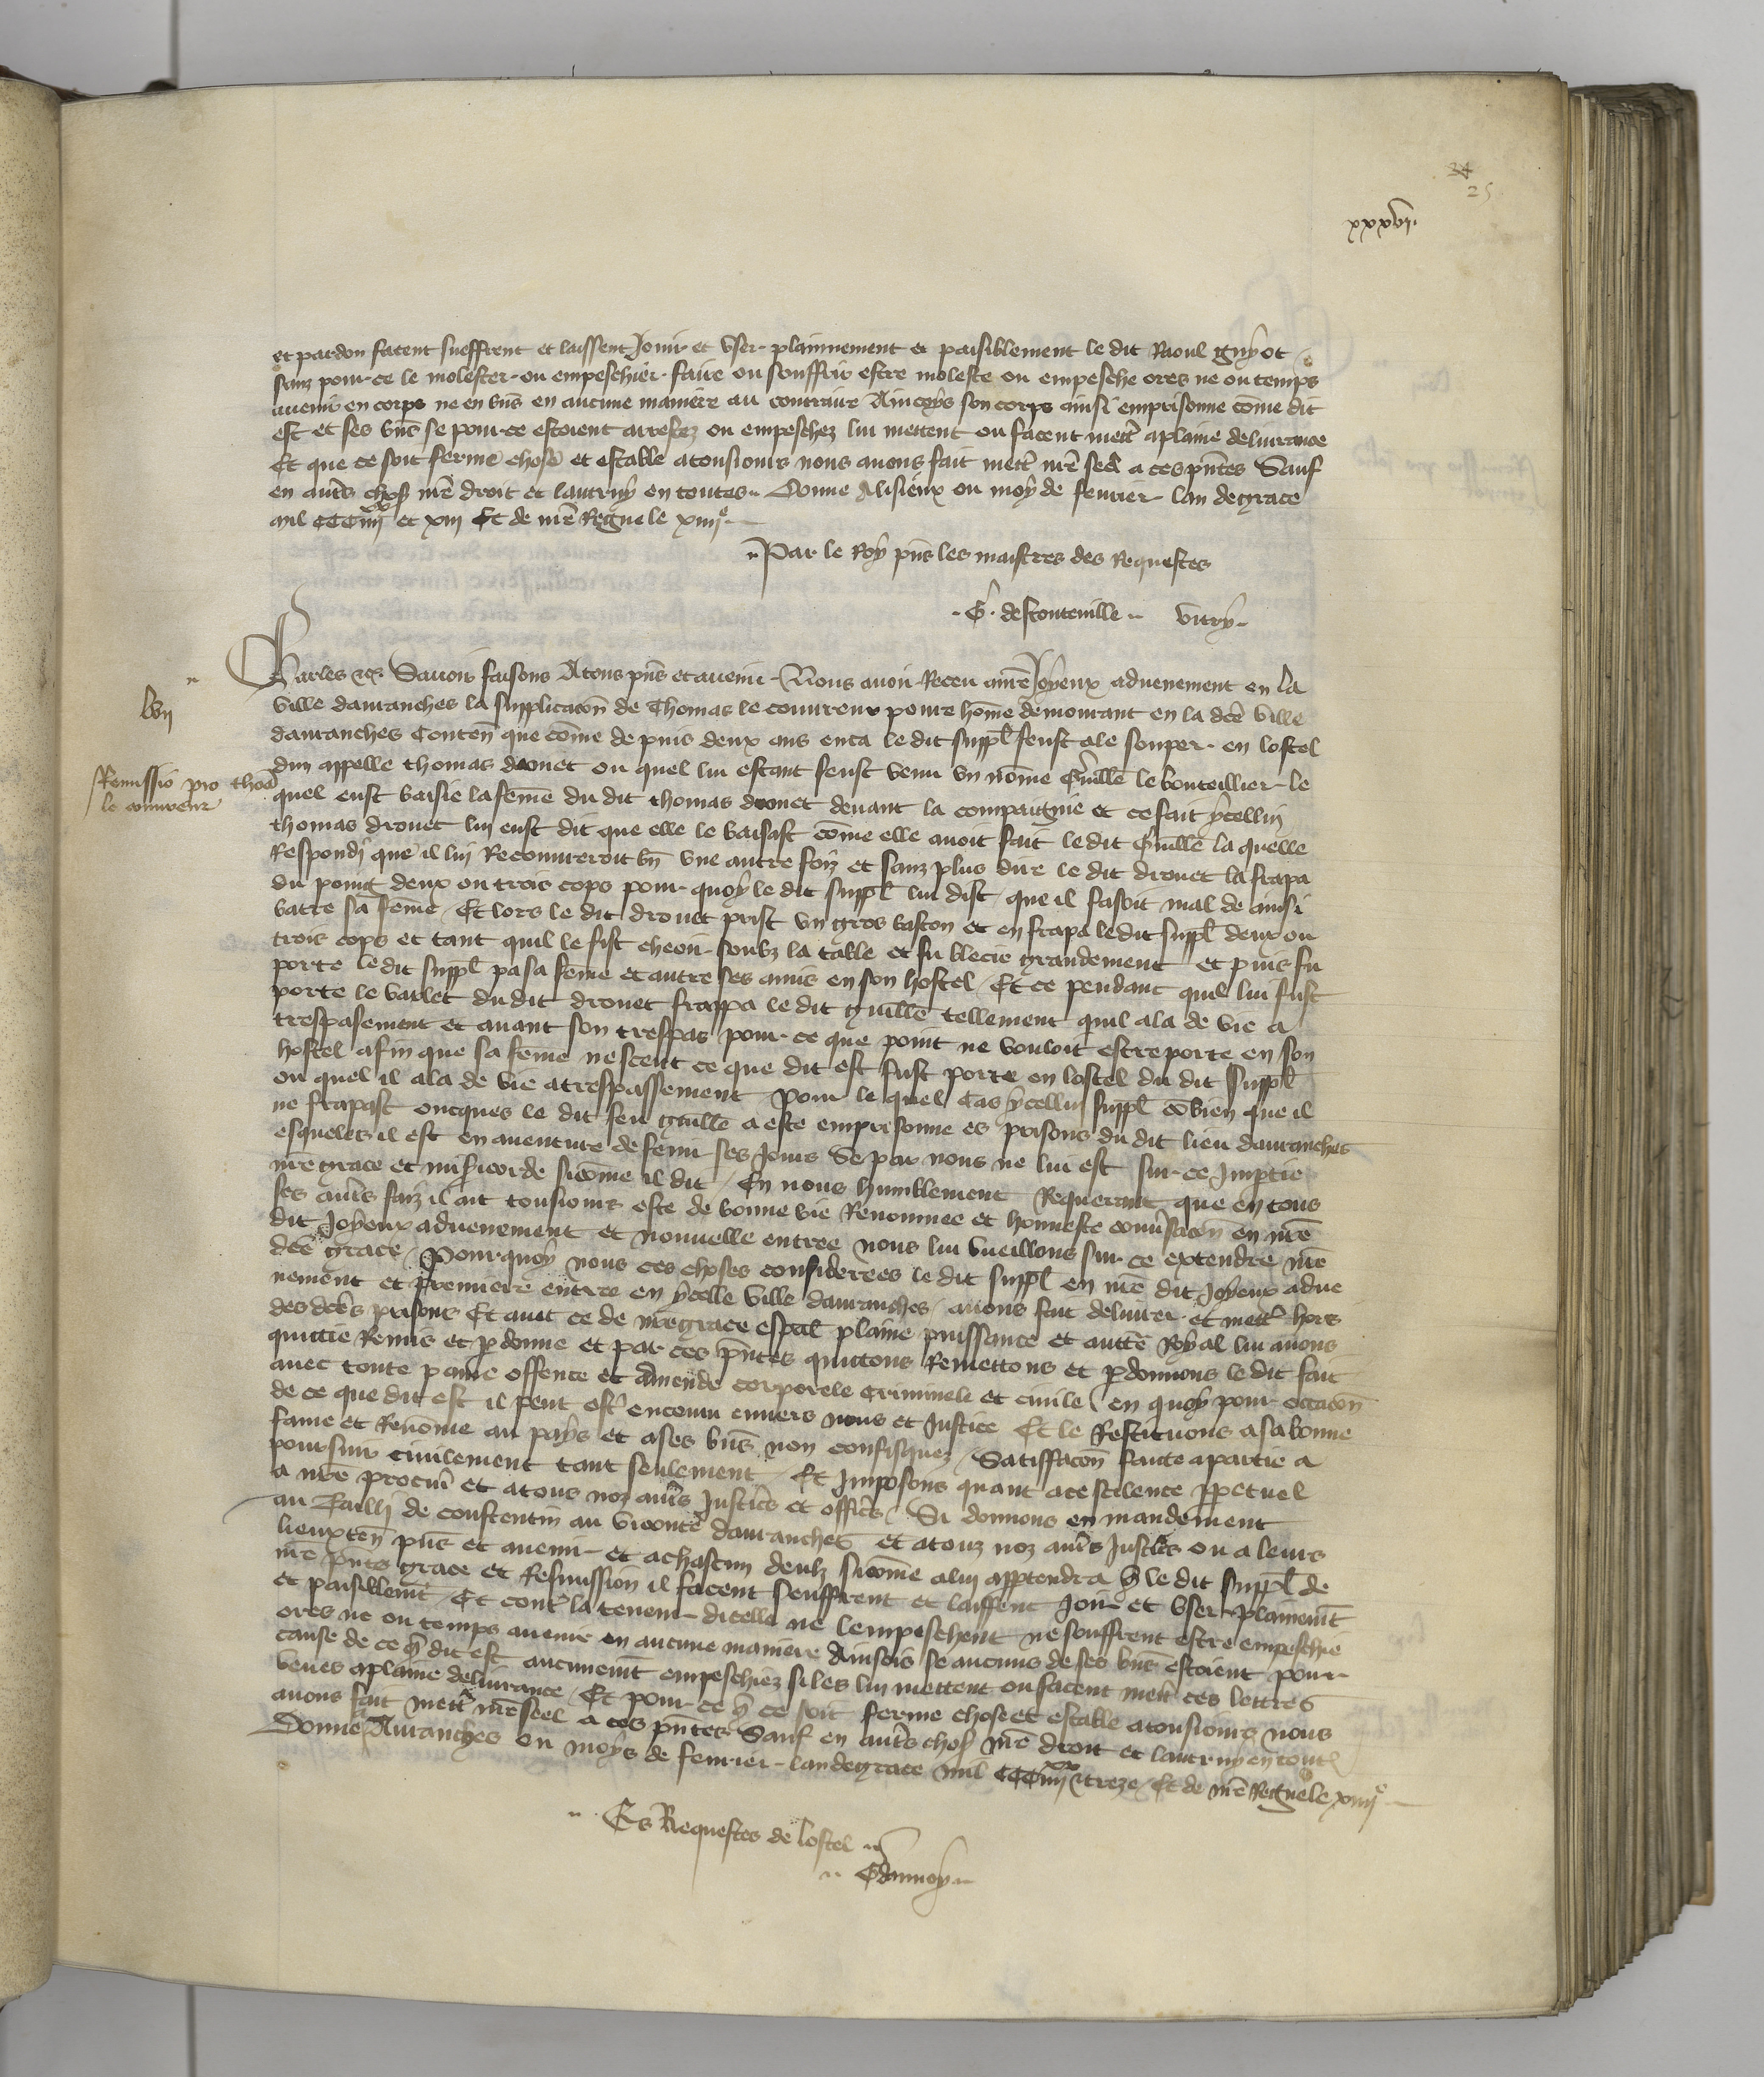 24
25
xxxvi.
et pardon facent sueffrent et laissent Joir et user plainnement et paisiblement le dit Raoul guyot
sanz pour ce le molester ou empeschier faire ou souffrir estre moleste ou empesche ores ne ou temps
avenir en corps ne en biēs en aucune maniere au contraire Aincoys son corps ainsi emprisonne cōme dit
est et ses biēs se pour ce estoient arrestez ou empeschez lui mettent ou facent mettr̄ a plaine delivrance
Et que ce soit ferme chose et estable a tousiours nous avons fait mettr̄ nr̄e seel a ces pn̄tes Sauf
en aut̄s chos̄ nr̄e droit et lautruy en toutes Donne A lisieux ou moys de fevrier lan de grace
mil CCC iiiixx et xiii Et de nr̄e Regne le xiiiie
Par le Roy pn̄s les maistres des Requestes
G. destouteville Vitry
lvii
Remissio pro thoā le couvreur
Charles etc. Savoir faisons A tous pn̄s et avenir Nous avoir Receu a nr̄e Joyeux advenement en la
ville davranches la supplicacōn de Thomas le couvreur povre hōme demourant en la dcē ville
davranches Conten̄ que cōme depuis deux ans enca le dit suppl̄ feust ale souper en lostel
dun appelle thomas drouet ou quel lui estant feust venu un nōme Guill̄e le bouteillier le
quel eust baisie la fēme du dit thomas drouet devant la compaignie et ce fait ycellui
thomas drouet lui eust dit que elle le baisast cōme elle avoit fait le dit Guill̄e la quelle
Respondi que il lui Recouvreroit bn̄ une autre foiz et sanz plus dire le dit drouet la frapa
du poing deux ou trois cops pour quoy le dit suppl̄ lui dist que il fasoit mal de ainsi
batre sa fēme Et lors le dit drouet prist un gros baston et en frapa le dit suppl̄ deux ou
trois cops et tant quil le fist cheoir soubz la table et fu blecie grandement et puis fu
porte le dit suppl̄ pa sa fēme et autre ses amis en son hostel Et ce pendant quil lui fust
porte le varlet du dit drouet frappa le dit guill̄e tellement quil ala de vie a
trespasement et avant son trespas pour ce que point ne vouloit estre porte en son
hostel afin que sa fēme ne sceut ce que dit est fust porte en lostel du dit suppl̄
ou quel il ala de vie a trespassement Pour le quel Cas ycellui suppl̄ cōbien que il
ne frapast oncques le dit feu guill̄e a este emprisonne es prisons du dit lieu davranches
esqueles il est en aventure de fenir ses Jours Se par nous ne lui est sur ce Imptie
nr̄e grace et mis̄icorde si cōme il dit En nous humblement Requerant que en tous
ses aut̄s faiz il ait tousiours este de bonne vie Renommee et honneste conv̄sacōn en nr̄e
dit Joyeux advenement et nouvelle entree nous lui vueillons sur ce extendre nr̄e
dcē grace Pourquoy nous ces choses considerees le dit suppl̄ en nr̄e dit Joyeux adve
nement et premiere entree en ycelle ville davranches avons fait delivrer et mettr̄ hors
des dcēs prisons Et avec ce de nr̄e grace esp̄al plaine puissance et auctē Royal lui avons
quittie Remis et pdonne et par ces pn̄tes quittons Remettons et pdonnons le dit fait
avec toute paine offence et amende corporele Criminele et civile en quoy pour occacōn
de ce que dit est il peut estr̄ encouru envers nous et Justice Et le Restituons a sa bonne
fame et Renōmee au pays et a ses biēs non confisquez Satisfacōn faite a partie a
poursuir civilement tant seulement Et Imposons quant a ce scilence ppetuel
a nr̄e procur̄ et a tous noz aut̄s Justic̄s et offic̄s Si donnons en mandement
au Bailli de coustentin au viconte davranches et a touz noz aut̄s Justic̄s ou a leurs
lieuxten̄ pn̄s et avenir et a chascun deulz si cōme a lui apptendra q̄ le dit suppl̄ de
nr̄e pn̄te grace et Remission il facent seuffrent et laissent Joir et user plainem̄t
et paisiblem̄t Et cont̄ la teneur dicelle ne lempeschent ne souffrent estre empeschie
ores ne ou temps avenir en aucune maniere Ainsois se aucuns de ses biēs estoient pour
cause de ce q̄ dit est aucunem̄t empeschiez si les lui mettent ou facent mettr̄ ces lettres
veues a plaine delivrance Et pour ce q̄ ce soit ferme chose et estable a tousiours nous
avons fait mettr̄ nr̄e seel a ces pn̄tes Sauf en aut̄s chos̄ nr̄e droit et lautruy en tout̄
Donne A Avranches ou moys de fevrier lan de grace mil CCC iiiixx et treze Et de nr̄e Regne le xiiiie
Es Requestes de lostel
Gdunoy